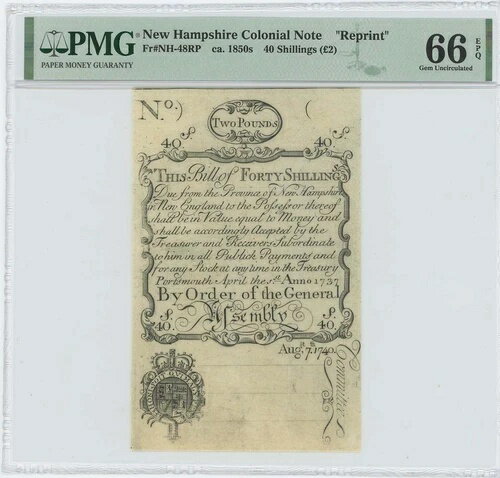 PMG
PAPER MONEY GUARANTY
New Hampshire Colonial Note "Reprint"
Fr#NH-48RP ca. 1850s 40 Shillings (£2)
66 EPQ
Gem Uncirculated
No.) (
TWO POUNDS
40 S 40 S
THIS Bill of FORTY SHILLING
Due from the Province of New Hampshire
in New England to the Possessor thereof
shall be in Value equal to Money and
shall be accordingly Accepted by the
Treasurer and Receivers Subordinate
to him in all Publick Payments and
for any Stock at any time in the Treasury
Portsmouth April the 1st Anno 1737
By Order of the General
Assembly
S. 40. S. 40.
Augst. 7. 1740.
Committee